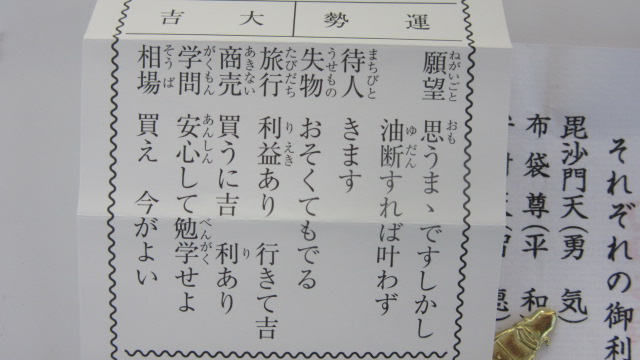 運勢 大吉
願望 思うまゝですしかし
油断すれば叶わず
待人 きます
失物 おそくてもでる
旅行 利益あり 行きて吉
商売 買うに吉 利あり
学問 安心して勉学せよ
相場 買え 今がよい
それぞれの御利
毘沙門天(勇 気)
布袋尊(平 和